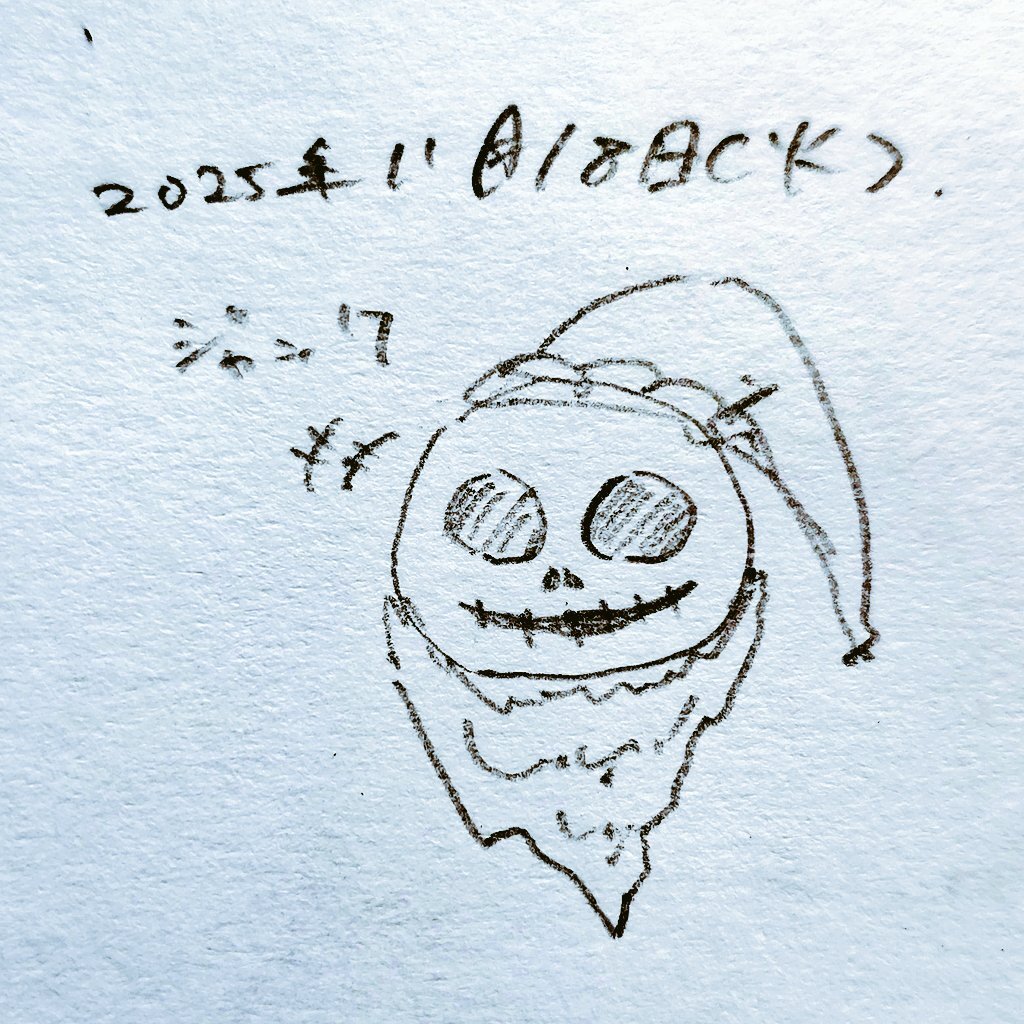 2025年11月18日(火).
ジャック